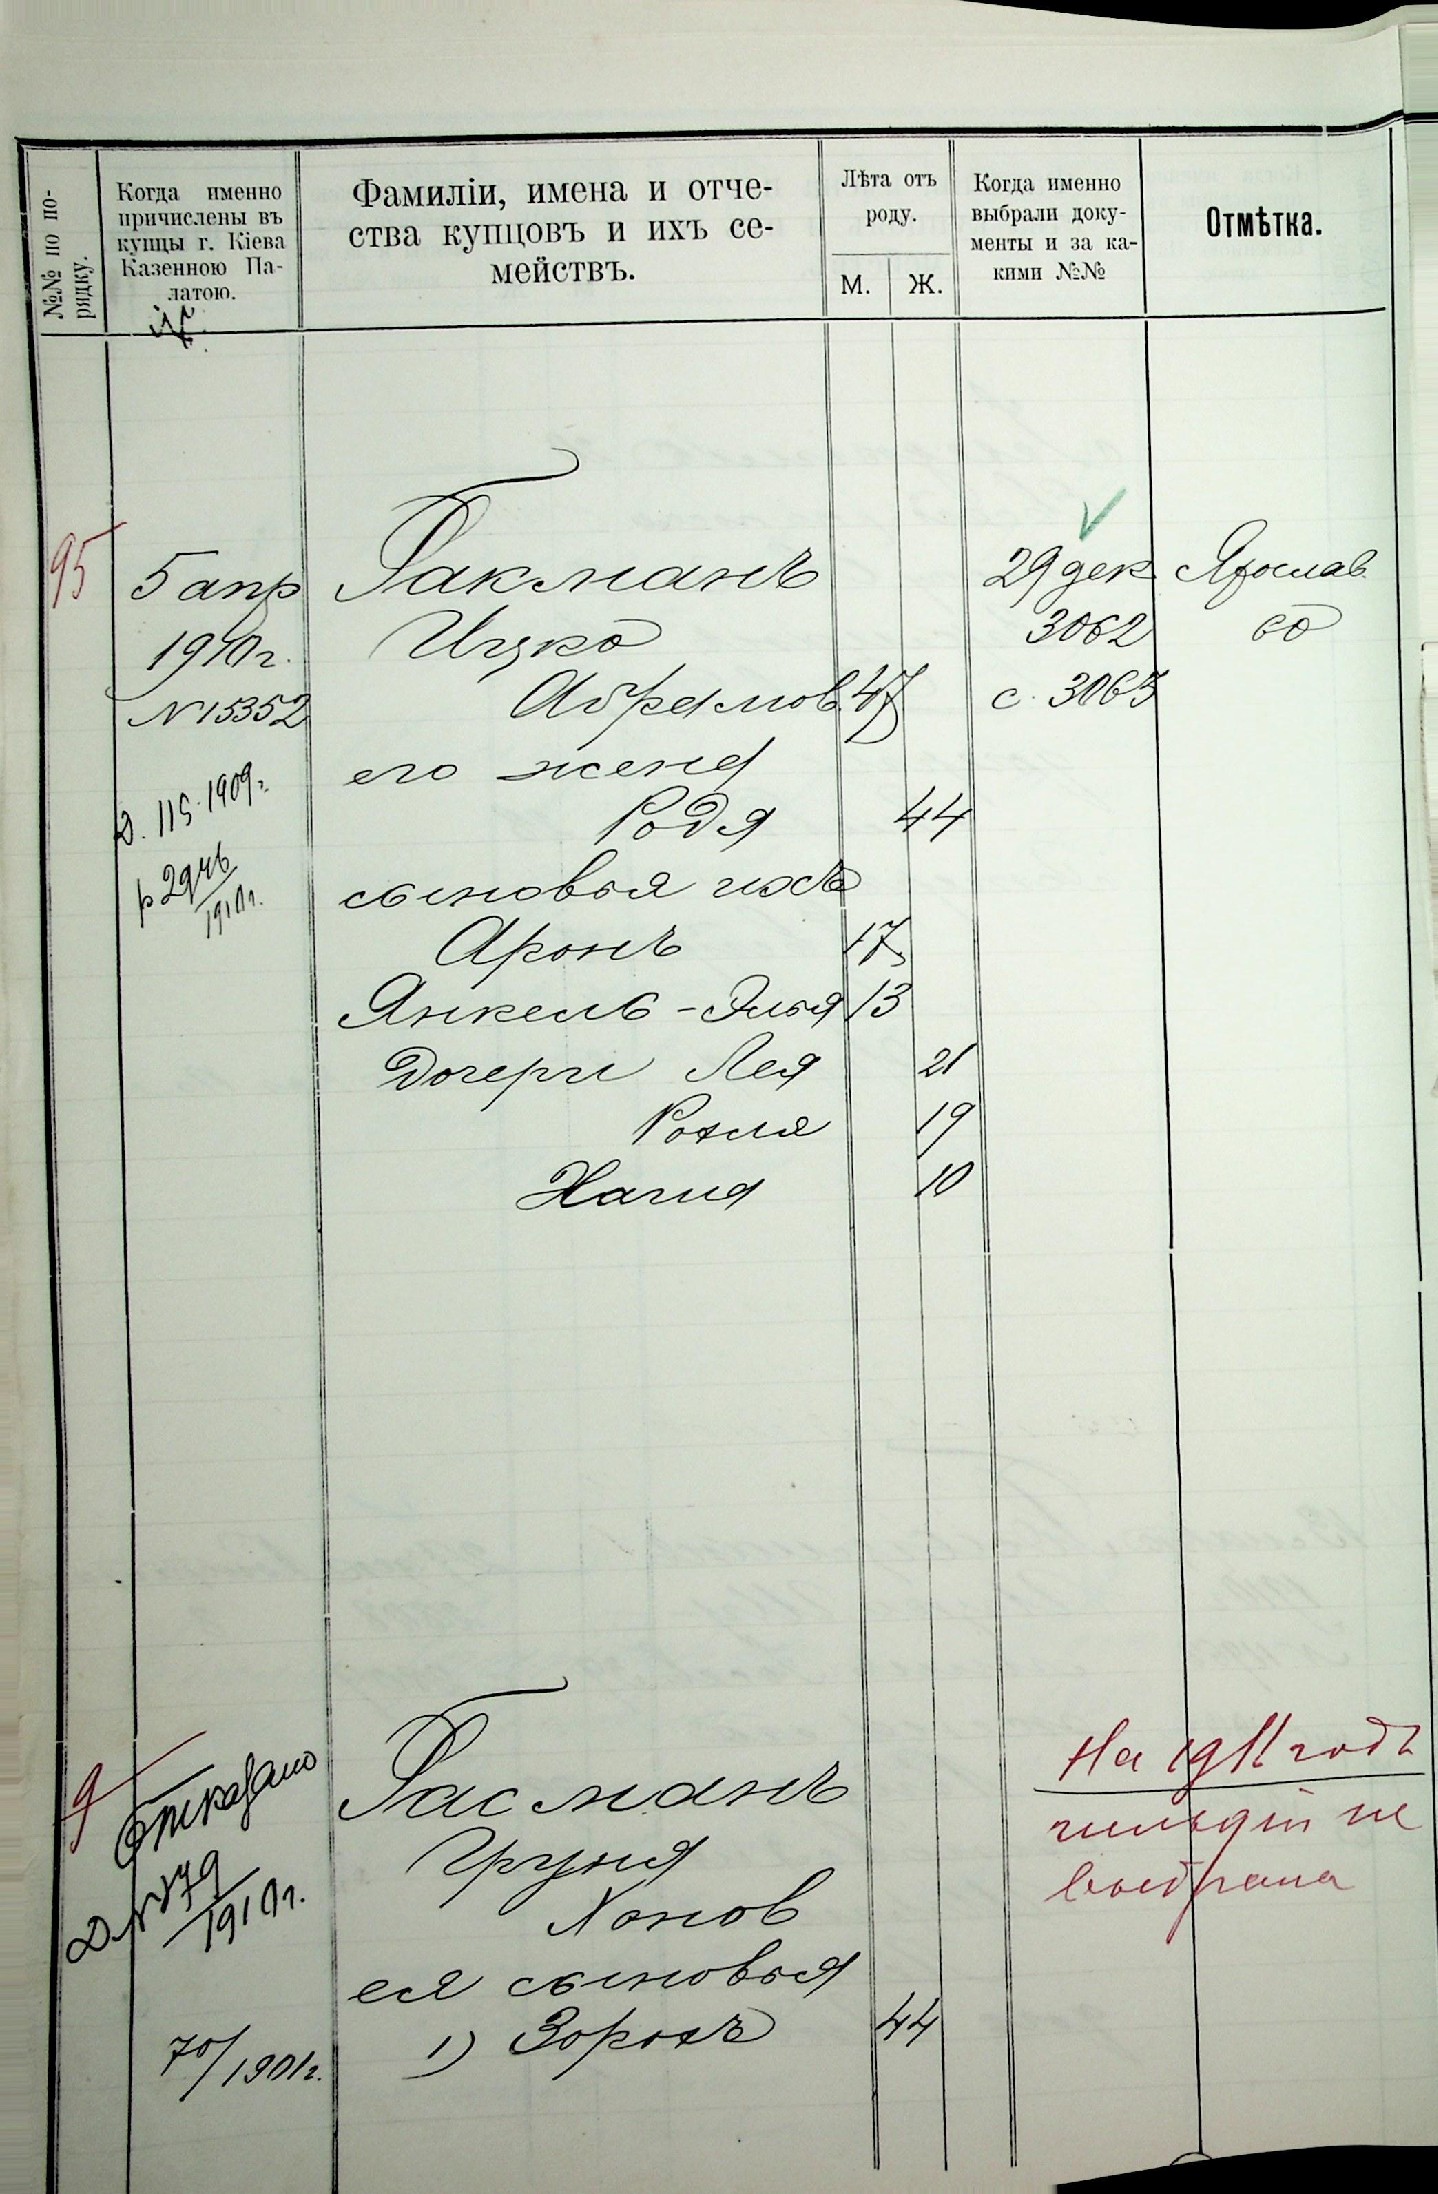 №№ по по-
рядку.
Когда именно
причислены въ
купцы г. Кіева
Казенною Па-
латою.
Фамиліи, имена и отче-
ства купцовъ и ихъ се-
мействъ.
Лѣта отъ
роду.
М.
Ж.
Когда именно
выбрали доку-
менты и за ка-
кими №№
Отмѣтка.
95
5 апр
1910 г.
N 15352
Д. 115. 1909 г.
1910 г.
Гакманъ
Ицко
Абрамов. 47
его жена
Родя 44
сыновья ихъ
Аронъ 17
Янкель-Элья 13
дочери Лея 21
Рохля 19
Хагия 10
29 дек
3062
с. 3063
Ярослав.
60
9
Отказано
Д. N 79
1910 г.
70/1901 г.
Гасманъ
Груня
Ханов
ея сыновья
1) Зорахъ 44
На 1911 годъ
гильдіи не
выбрала